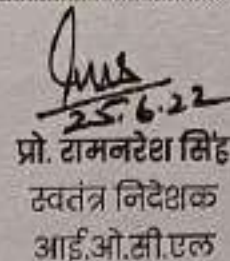 25.6.22
प्रो. रामनरेश सिंह
स्वतंत्र निदेशक
आई.ओ.सी.एल